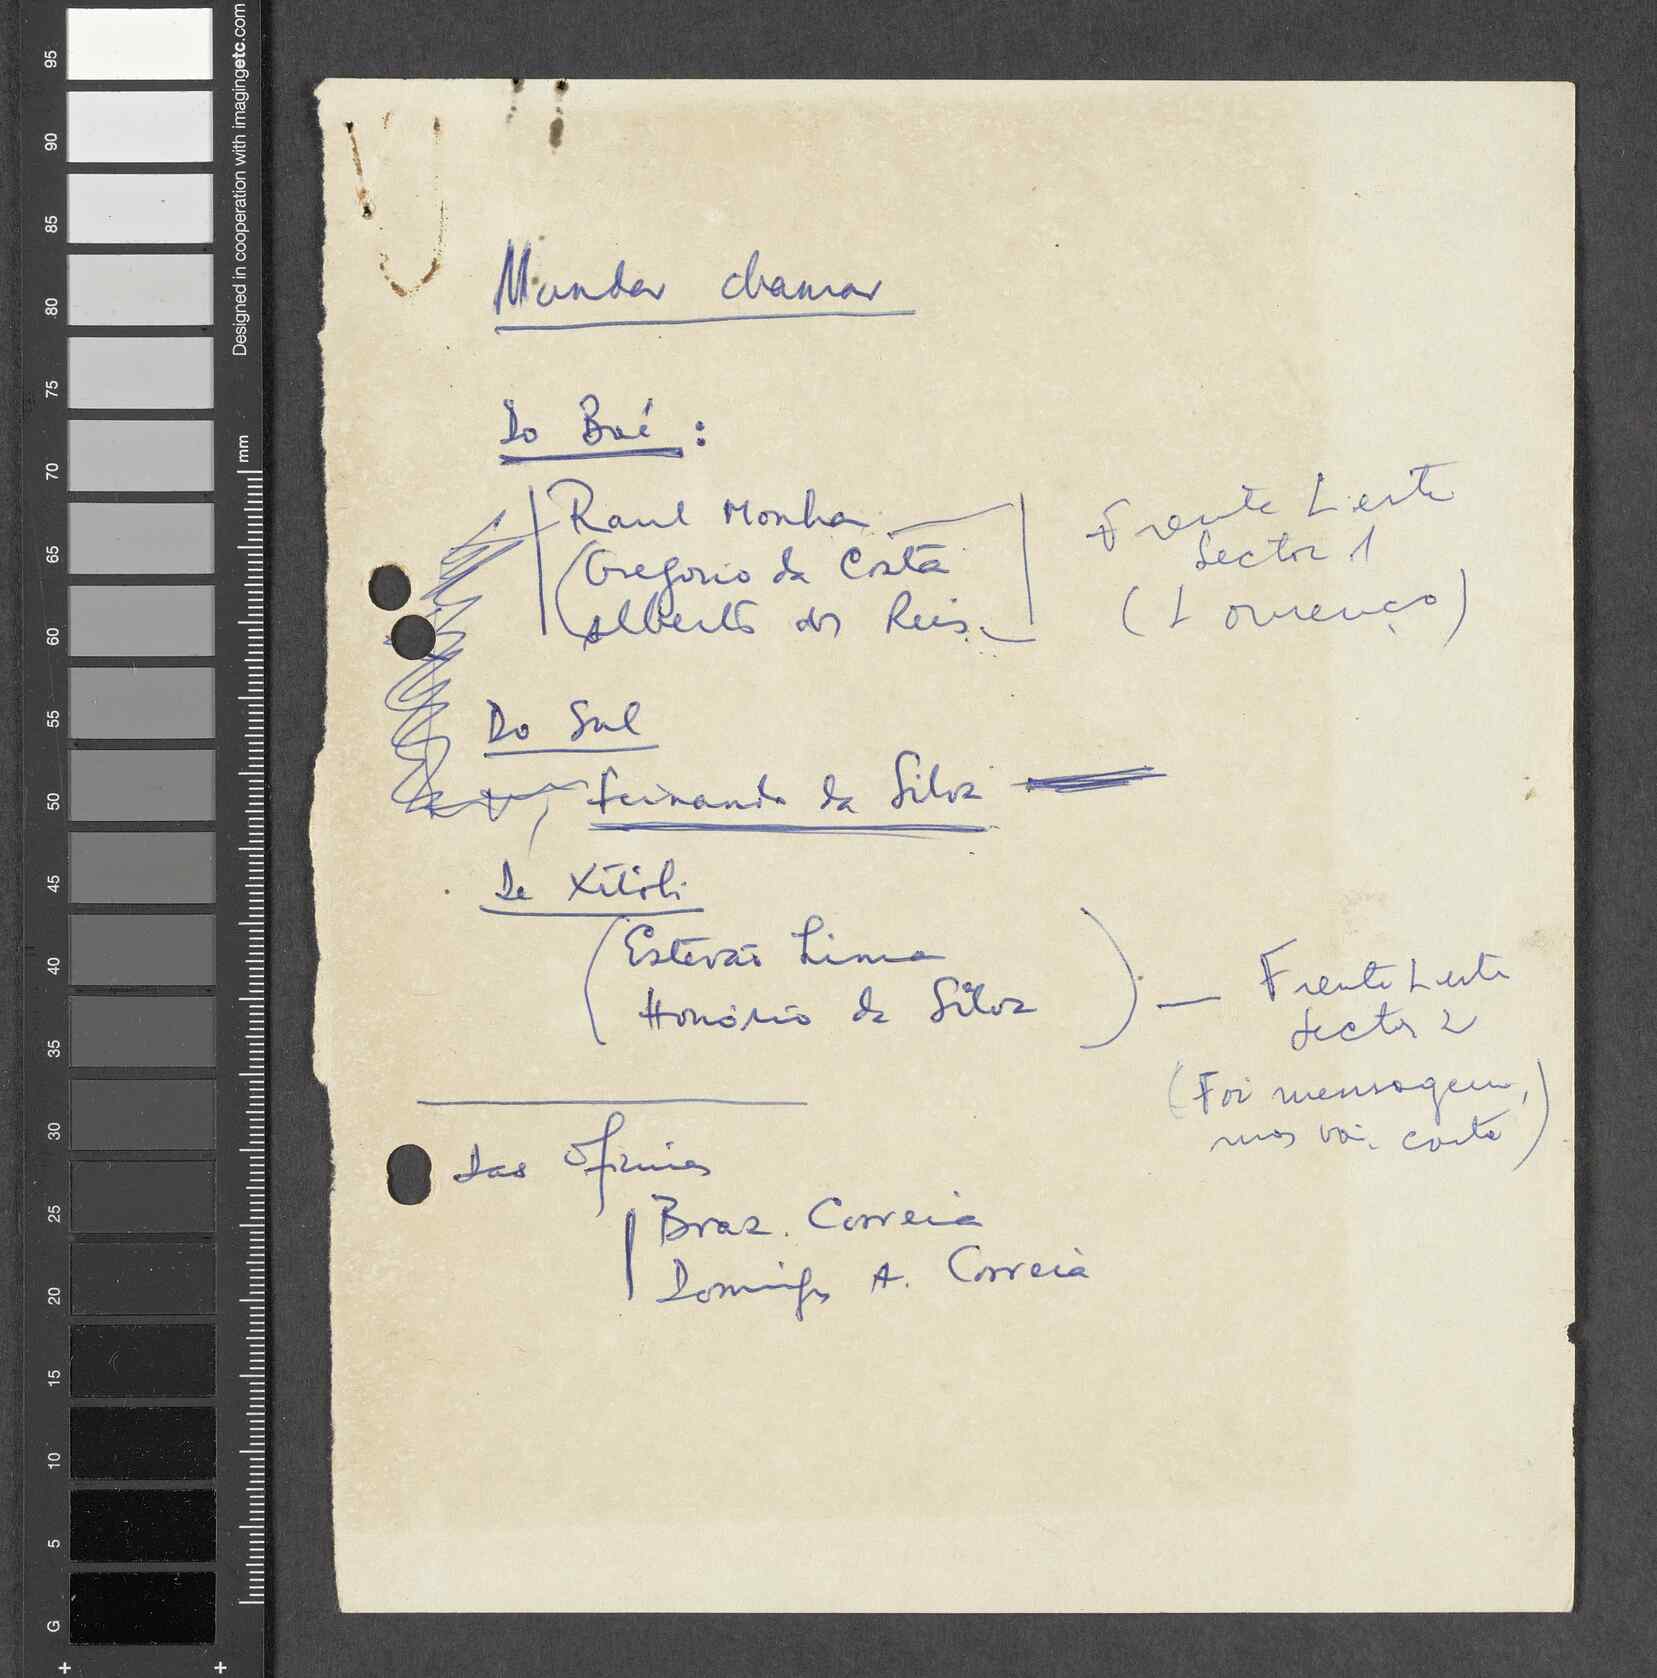 Designed in cooperation with imagingetc.com
mm
95
90
85
80
75
70
65
60
55
50
45
40
35
30
25
20
15
10
5
G
Mandar chamar
Do Boé :
Raul Monha
Gregorio da Costa
Alberto dos Reis
Frente Leste
Sector 1
(Lourenço)
Do Sul
Fernando da Silva
De Xitoli
Estevão Lima
Honório da Silva
— Frente Leste
Sector 2
(Foi mensagem,
mas vai carta)
Das oficinas
Braz. Correia
Domingos A. Correia